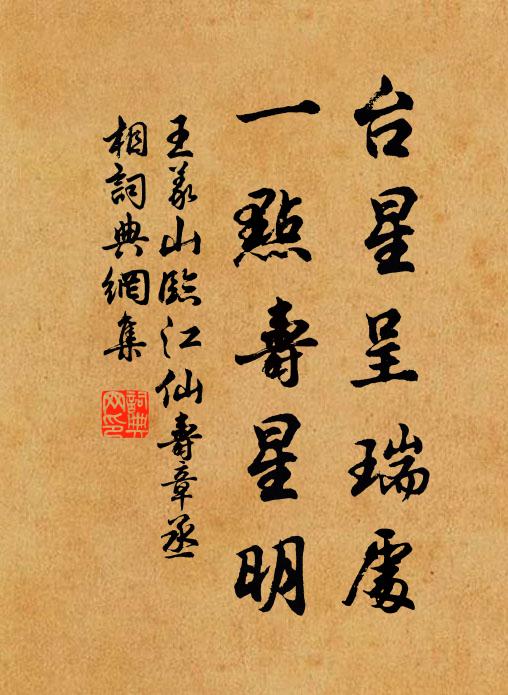 台星呈瑞處
一點壽星明
王義山臨江仙壽章丞
相詞典網集
詞典
网印